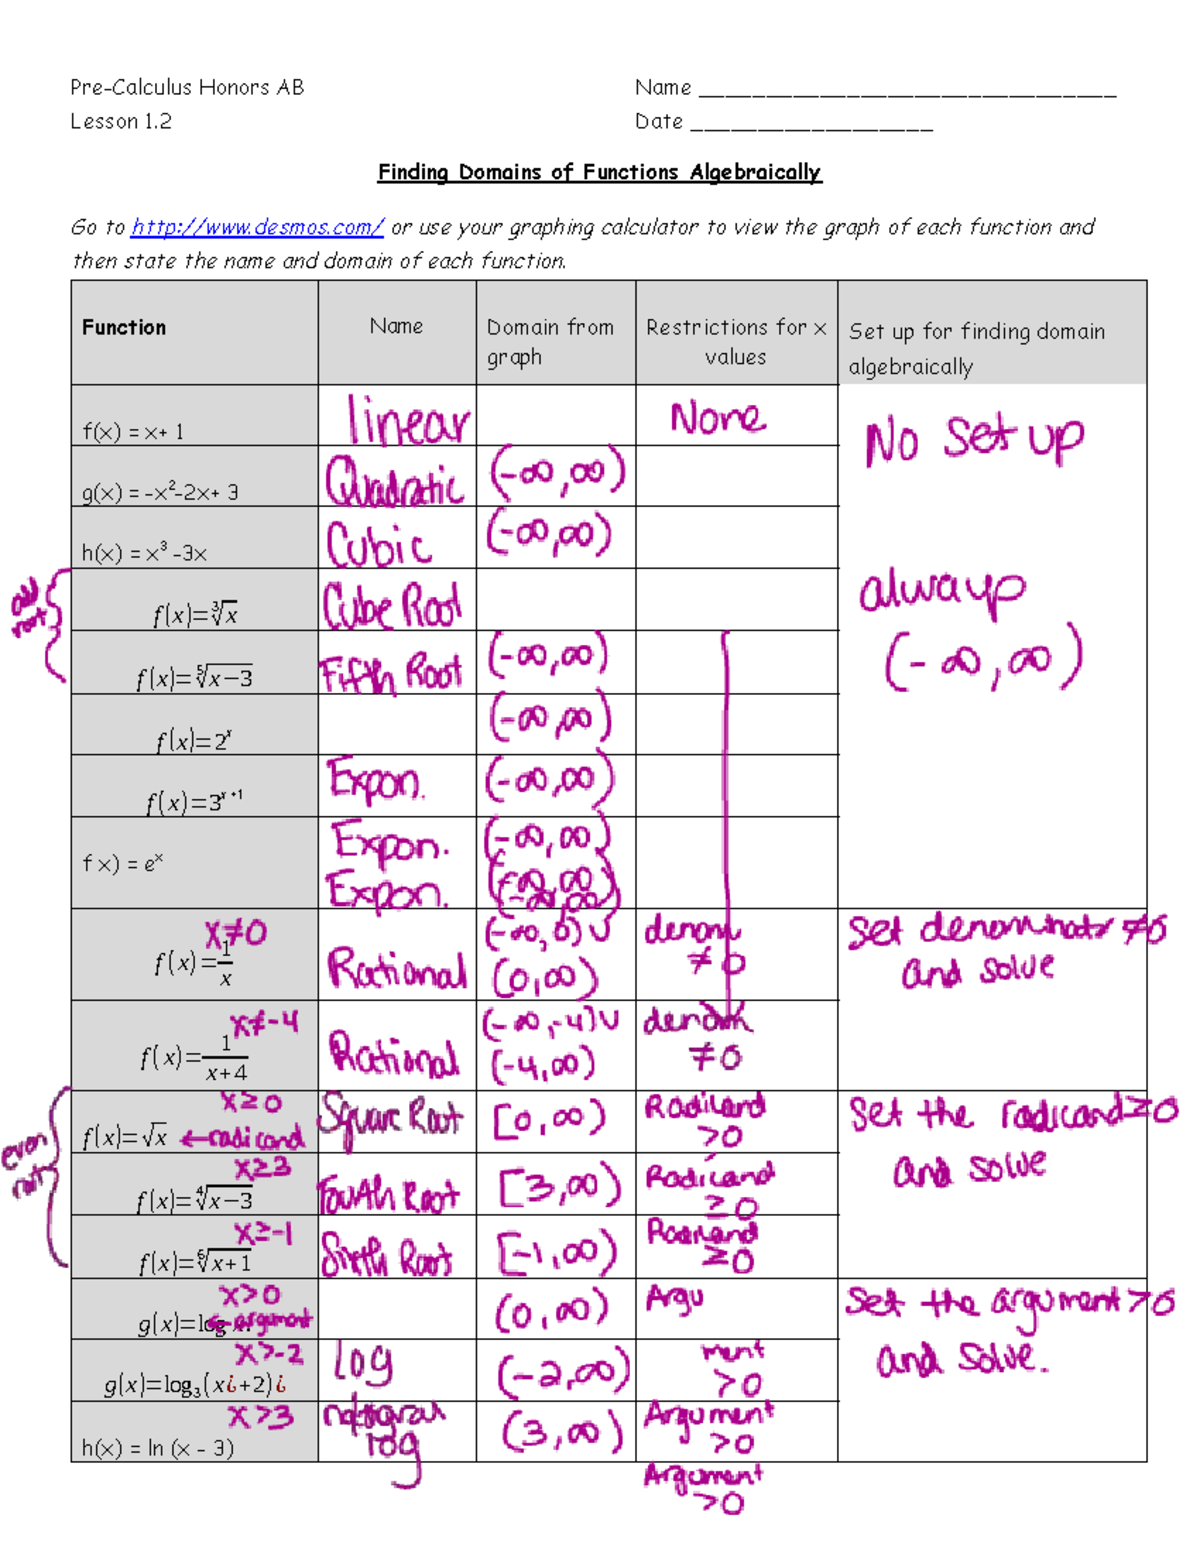 Pre-Calculus Honors AB Name ________________________________
Lesson 1.2 Date ___________________
Finding Domains of Functions Algebraically
Go to http://www.desmos.com/ or use your graphing calculator to view the graph of each function and
then state the name and domain of each function.
Function Name Domain from graph Restrictions for x values Set up for finding domain algebraically
f(x) = x+ 1 linear None No set up
g(x) = -x²-2x+ 3 Quadratic (-∞,∞)
h(x) = x³ -3x Cubic (-∞,∞)
odd root
f(x)=∛x Cube Root always
f(x)=⁵√x−3 Fifth Root (-∞,∞) (-∞,∞)
f(x)=2ˣ (-∞,∞)
f(x)=3ˣ⁺¹ Expon. (-∞,∞)
f x) = eˣ Expon. (-∞,∞)
Expon. (-∞,∞)
x≠0
f(x)=1/x Rational (-∞,0)∪ (0,∞) denom ≠0 Set denominator ≠0 and solve
x≠-4
f(x)=1/x+4 Rational (-∞,-4)∪ (-4,∞) denom ≠0
even root
x≥0
f(x)=√x ←radicand Square Root [0,∞) Radicand >0 Set the radicand≥0 and solve
x≥3
f(x)=⁴√x−3 Fourth Root [3,∞) Radicand ≥0
x≥-1
f(x)=⁶√x+1 Sixth Root [-1,∞) Radicand ≥0
x>0
g(x)=log x ←argument (0,∞) Argu Set the argument>0 and solve.
x>-2
g(x)=log₃(x¿+2)¿ log (-2,∞) ment >0
x>3
h(x) = ln (x - 3) natural log (3,∞) Argument >0
Argument >0